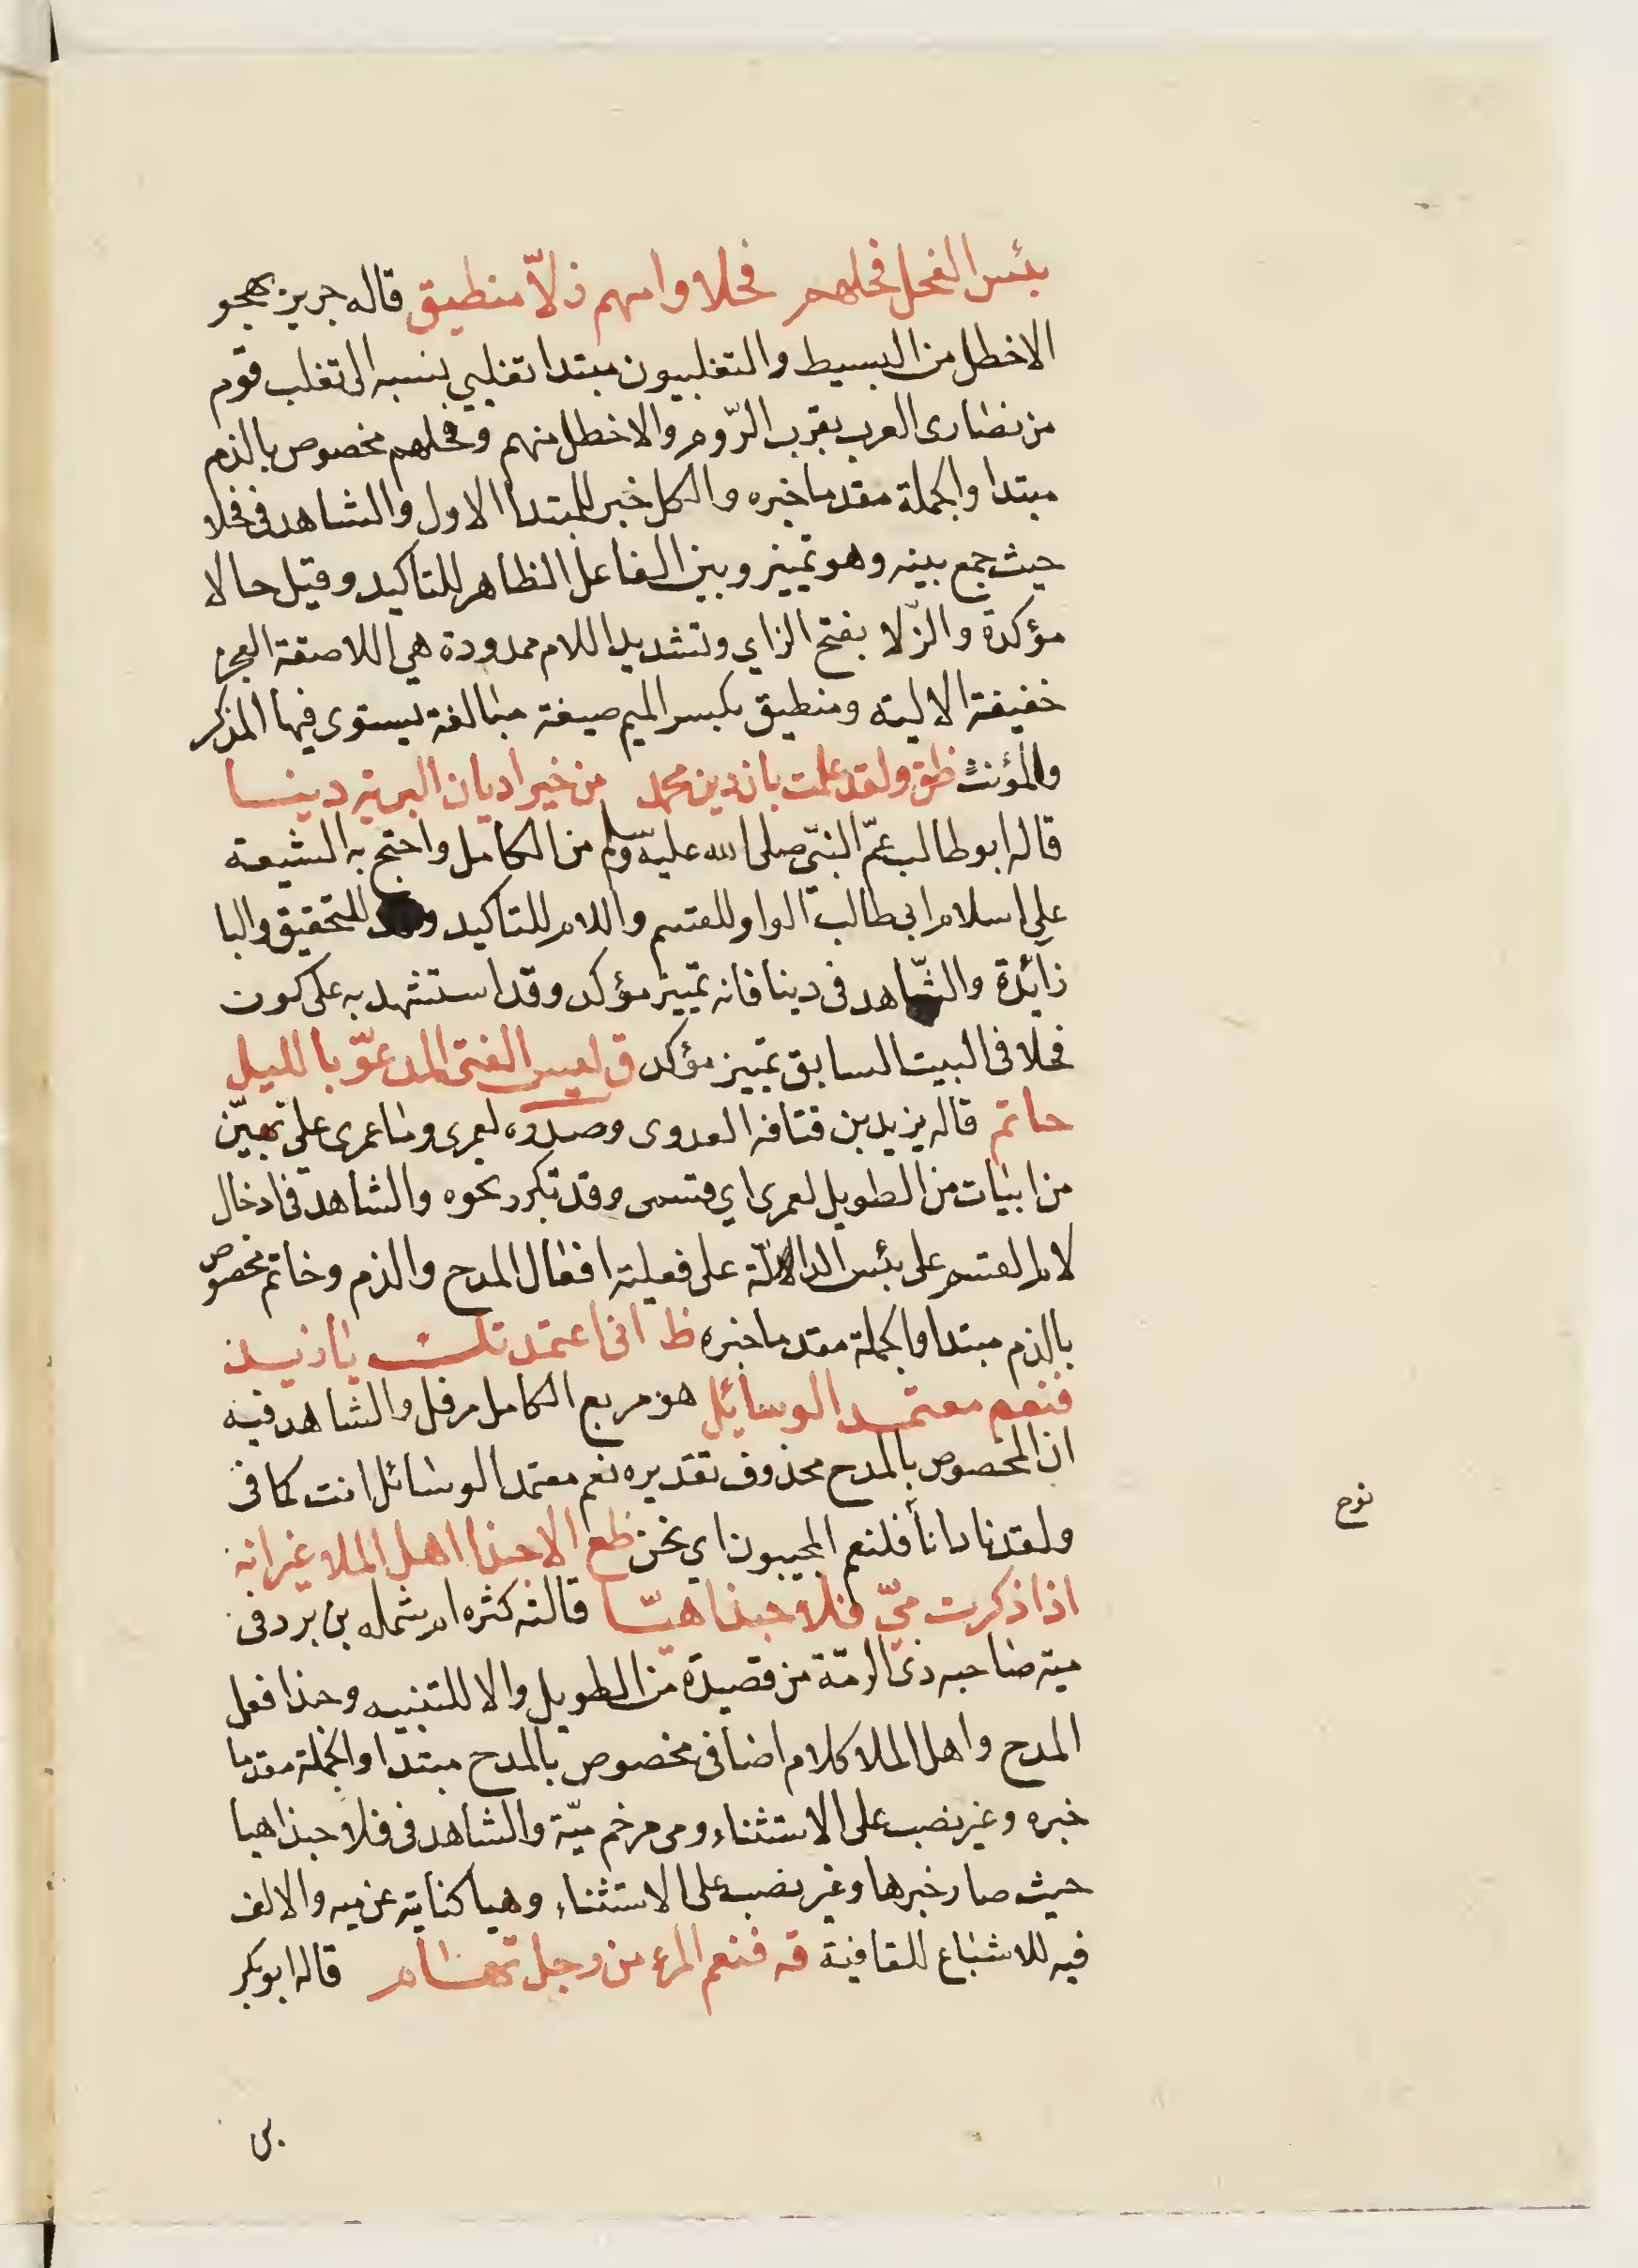 بئس الفحل فحلهم فحلا وامهم زلاّ منطيق قاله جرير يهجو
الاخطل من البسيط والتغلبيون مبتدا تغلبي بنسبه الى تغلب قوم
من نصارى العرب بقرب الرّوم والاخطل منهم وفحلهم مخصوص بالذم
مبتدا والجملة مقدما خبره والكل خبر للمبتدا الاول والشاهد فى فحلا
حيث جمع بينه وهو تمييز وبين الفاعل الظاهر للتاكيد وقيل حالا
مؤكدة والزّلا بفتح الزاي وتشديد اللام ممدودة هي اللاصقة العجز
خفيفة الالية ومنطيق بكسر الميم صيغة مبالغة يستوى فيها المذكر
والمؤنث ظق ولقد علمت بان دين محمد من خير اديان البرية دينا
قاله ابو طالب عمّ النبّى صلى الله عليه وسلم من الكامل واحتج به الشيعة
على اسلام ابى طالب الواو للقسم واللام للتاكيد وقد للتحقيق والبا
زآئدة والشّاهد فى دينا فانه تمييز مؤكد وقد استشهد به على كون
فحلا فى البيت السابق تمييز مؤكد ق لبيس الفتى المدعوّ بالليل
حاتم قاله يزيد بن قنافه العدوى وصدره لعمرى وما عمرى على بهيّن
من ابيات من الطويل لعمرى اي قسمى وقد تكرر نحوه والشاهد فى ادخال
لام القسم على بئس الدالّة على فعلية افعال المدح والذم وحاتم مخصوص
بالذم مبتدا والجملة مقدما خبره ظ انى اعتمدتك يا زيد
فنعم معتمد الوسائل هو مربع الكامل مرفل والشاهد فيه
ان المخصوص بالمدح محذوف تقديره نعم معتمد الوسائل انت كما فى
ولقد نادانا فلنعم المجيبون اي نحن ظع الا حبذا اهل الملا غير انه
اذا ذكرت ميّ فلا حبذا هيّا قالته كثره ام شمله بن برد فى
مية صاحبه ذى الرمّة من قصيدة من الطويل والا للتنبيه وحبذا فعل
المدح واهل الملا كلام اضافى مخصوص بالمدح مبتدا والجملة مقدما
خبره وغير نصب على الاستثناء ومى مرخم ميّة والشاهد فى فلا حبذا هيا
حيث صار خبرها وغير نصب على الاستثناء وهيا كناية عن ميه والالف
فيه للاشباع للقافية قه فنعم المرء من رجل تهام قاله ابو بكر
نوح
بن